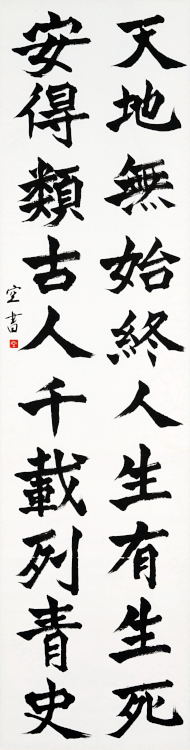 天地無始終人生有生死
安得類古人千載列青史
空書